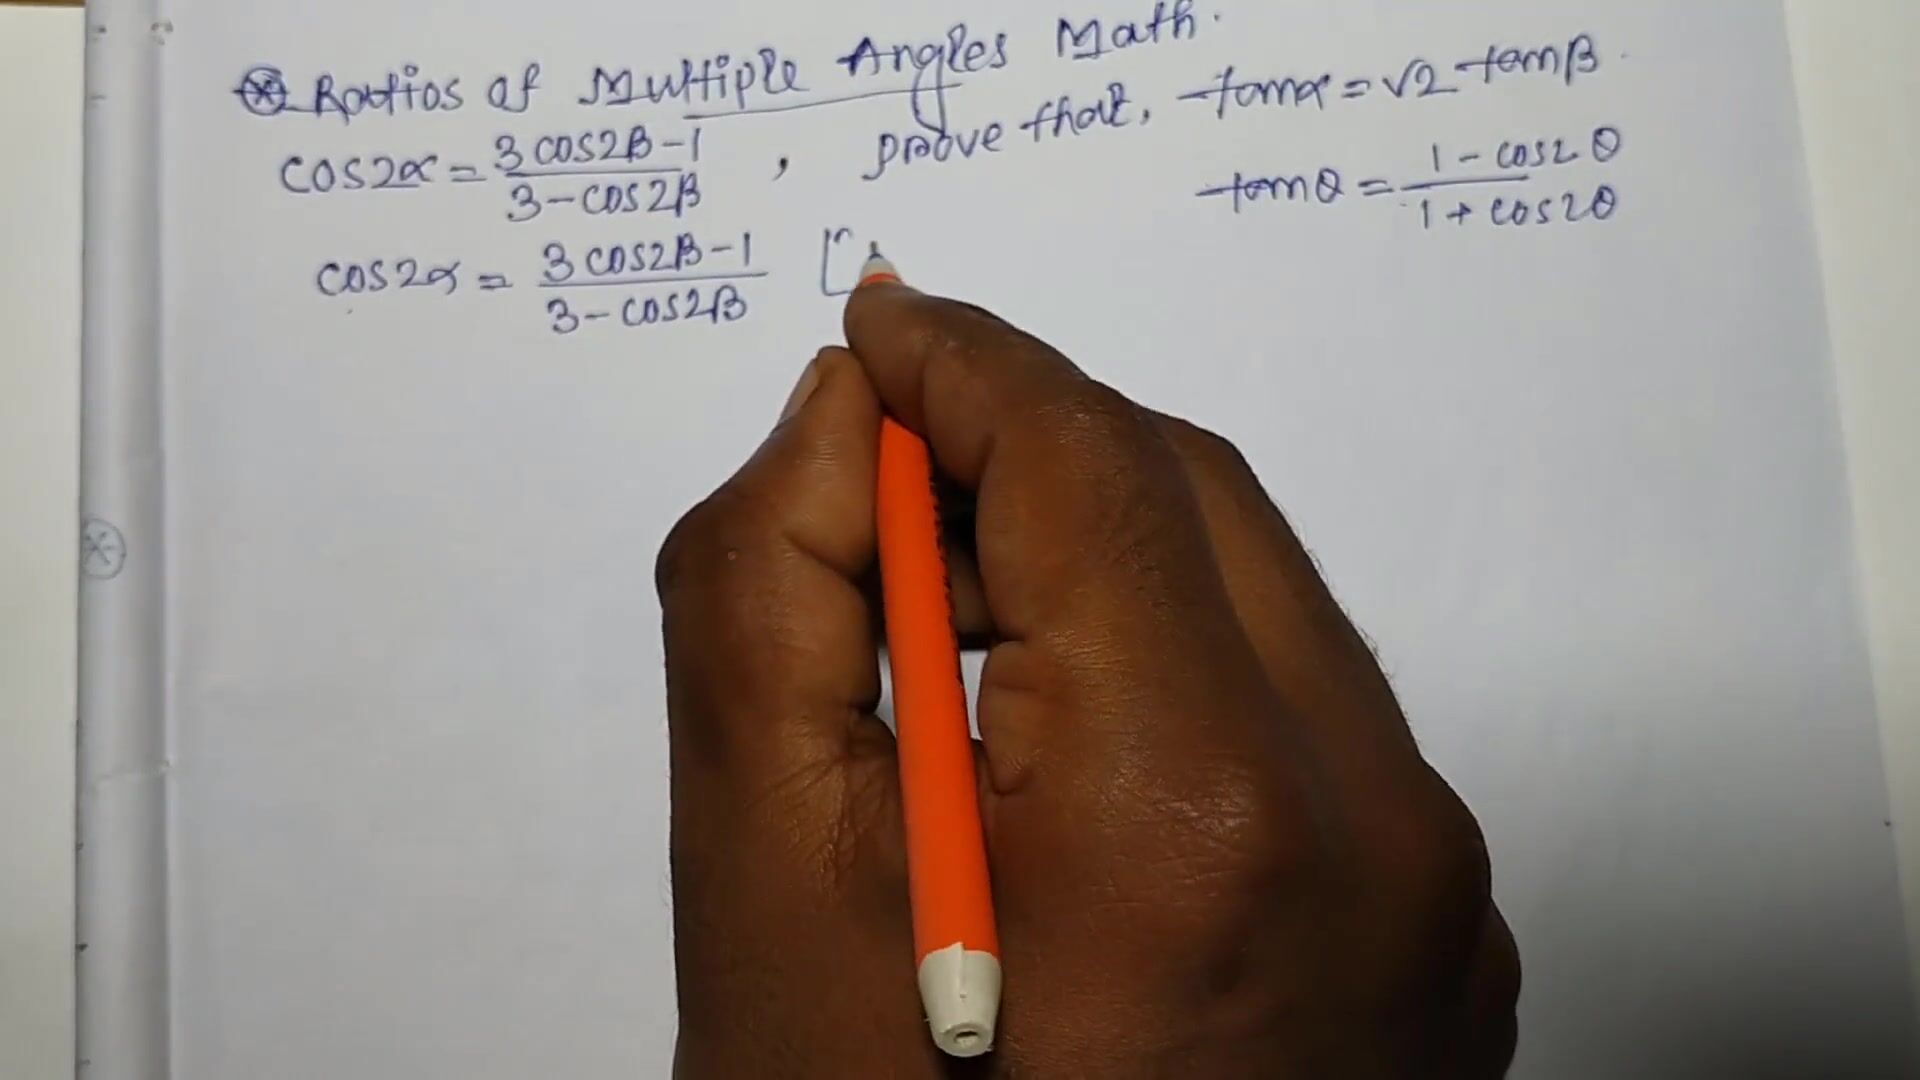 Ratios of Multiple Angles Math.
cos2α = (3cos2β-1)/(3-cos2β) , prove that, tanα = √2 tanβ.
tanθ = (1-cos2θ)/(1+cos2θ)
cos2α = (3cos2β-1)/(3-cos2β) [